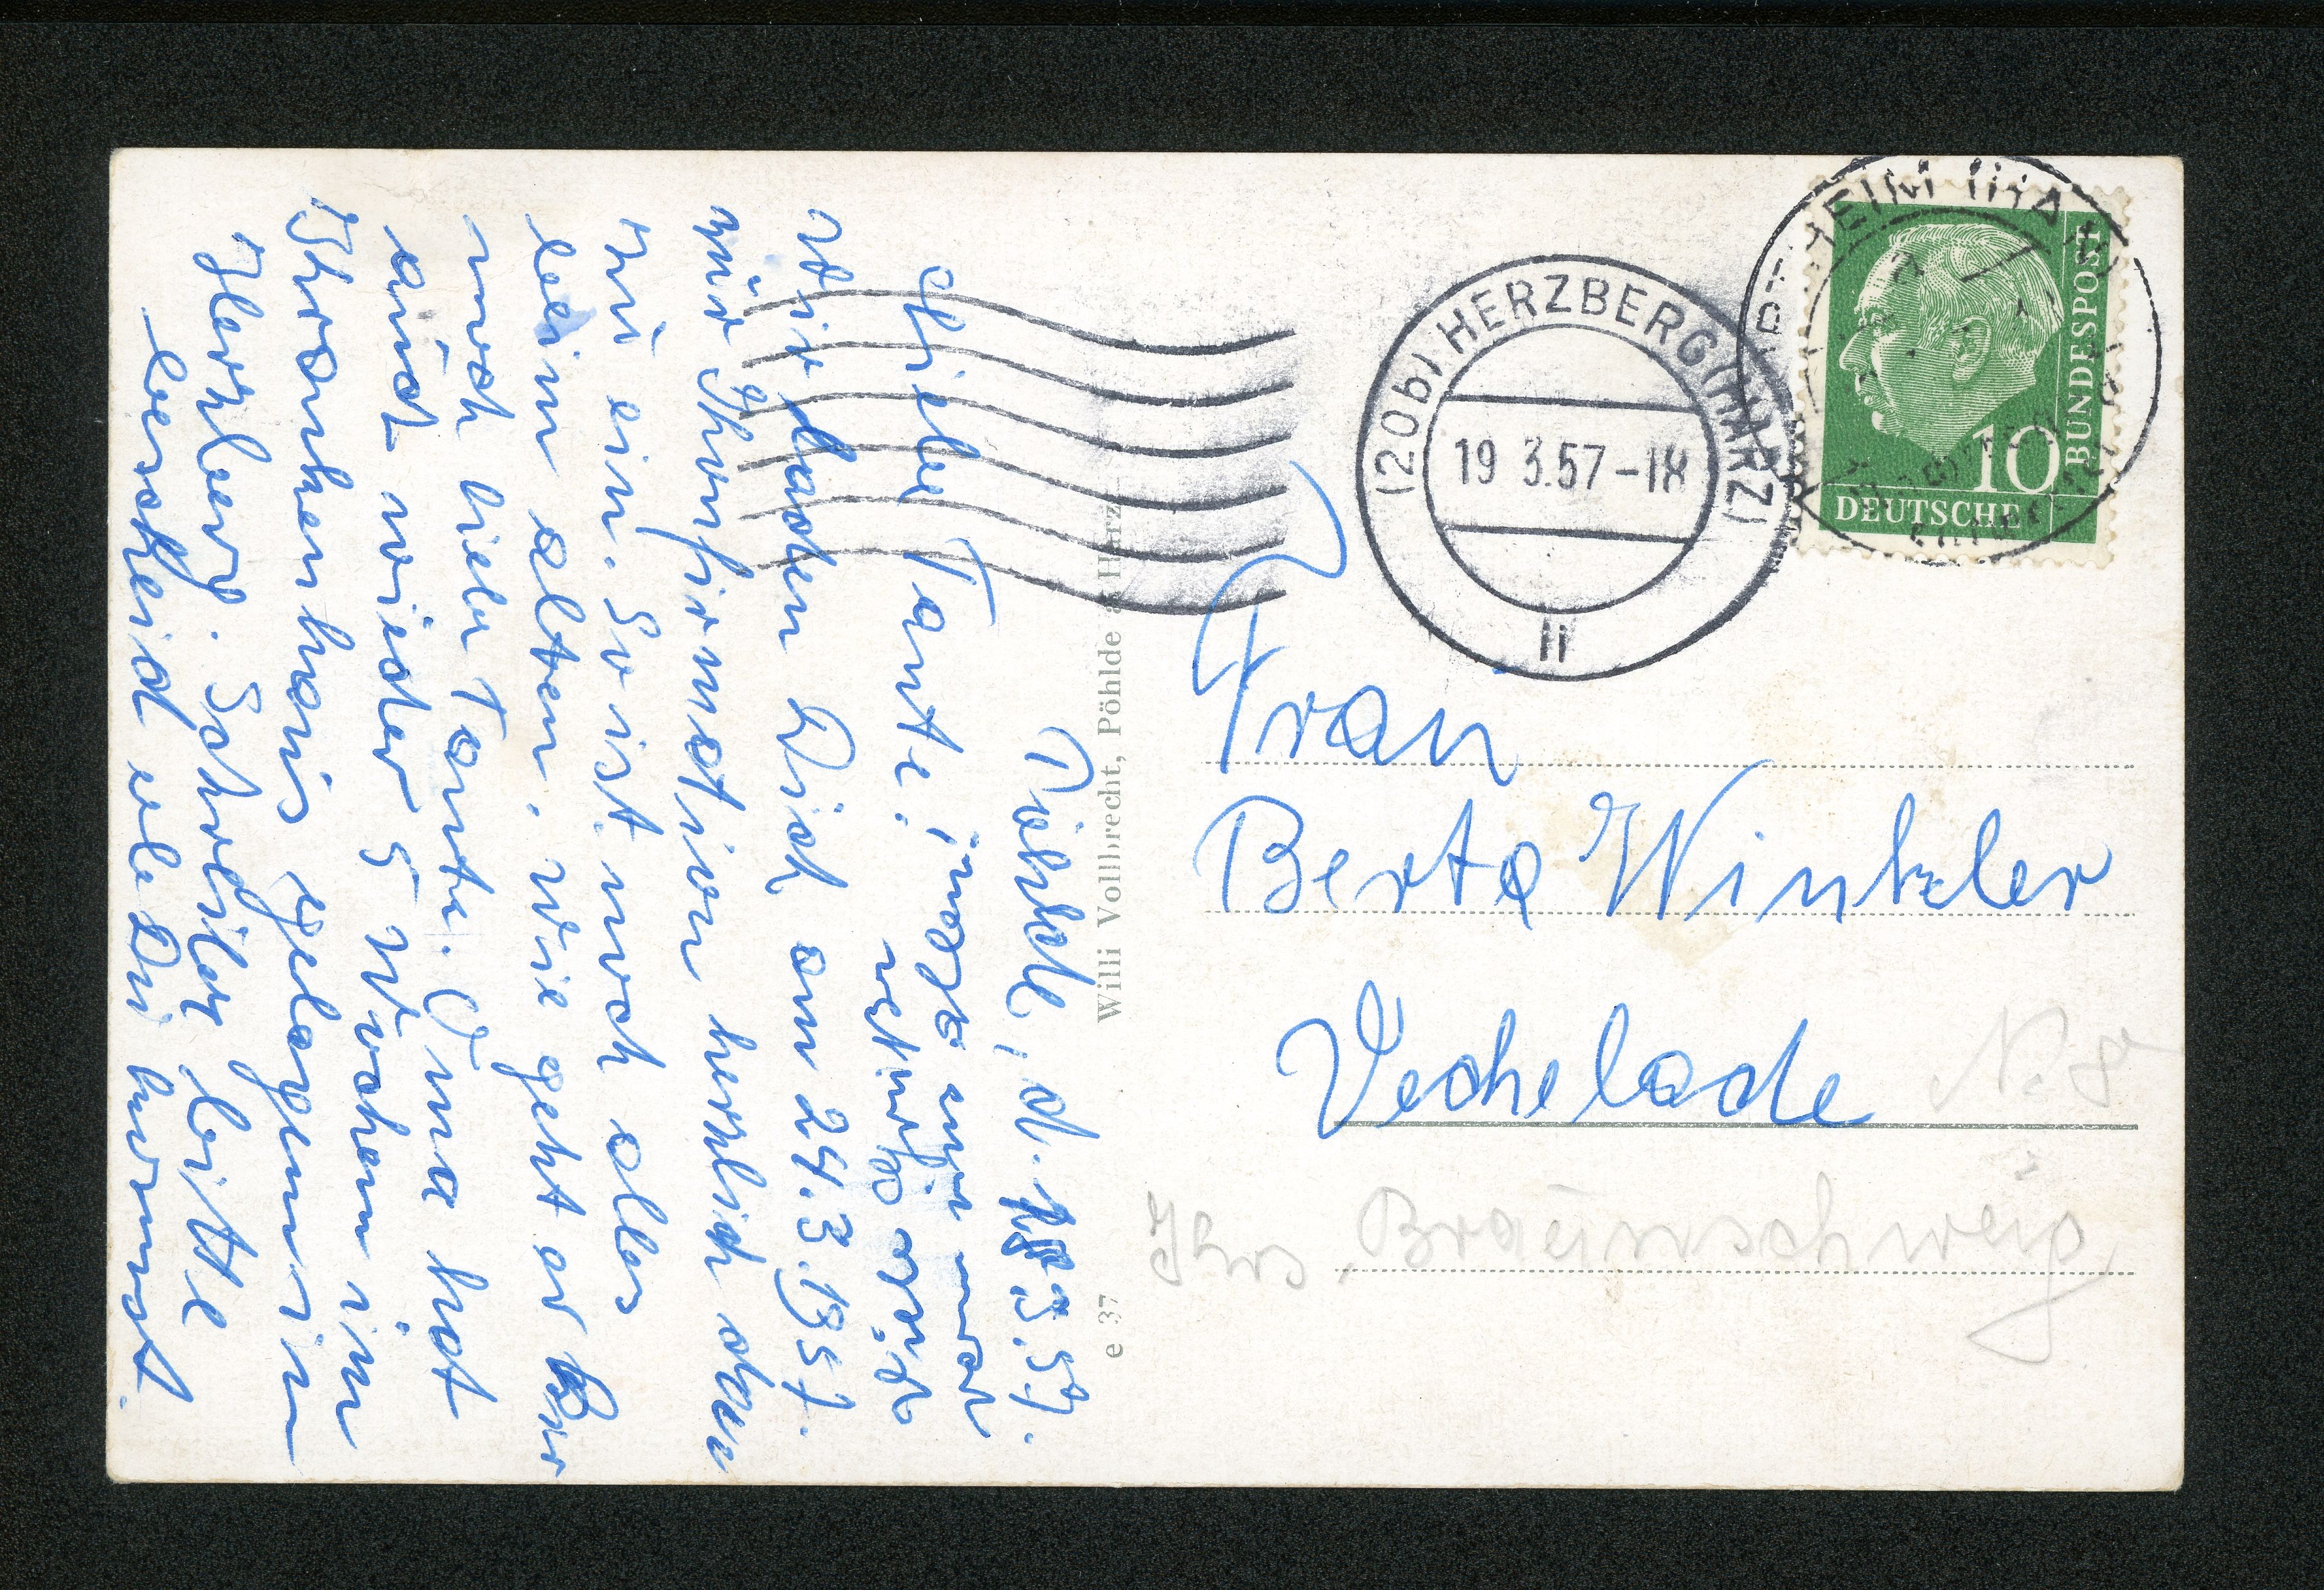 (20b) HERZBERG (HARZ)
19.3.57-18
li
10
DEUTSCHE
BUNDESPOST
Frau
Berta Winkler
Vechelade
Krs. Braunschweig
Willi Vollbrecht, Pöhlde a. Harz
e 37
Pöhlde, d. 18.3.57.
Liebe Tante!
Wir laden Dich am 24.3.1957.
zur Konfirmation herzlich
zu ein. So ist noch alles
beim alten, wie geht es
noch liebe Tante. Oma hat
auch wieder 5 Wochen im
Krankenhaus gelegen in
Herzberg. Schreibe bitte
bescheid ob Du kommst.